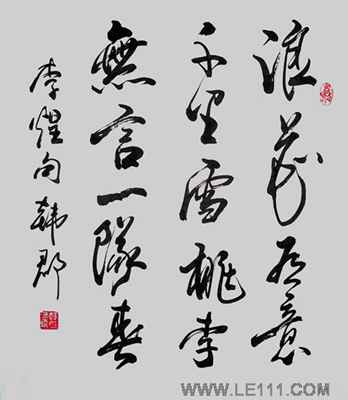 浪花有意
千里雪桃李
無言一隊春
李煜句韩郡
WWW.LE111.COM